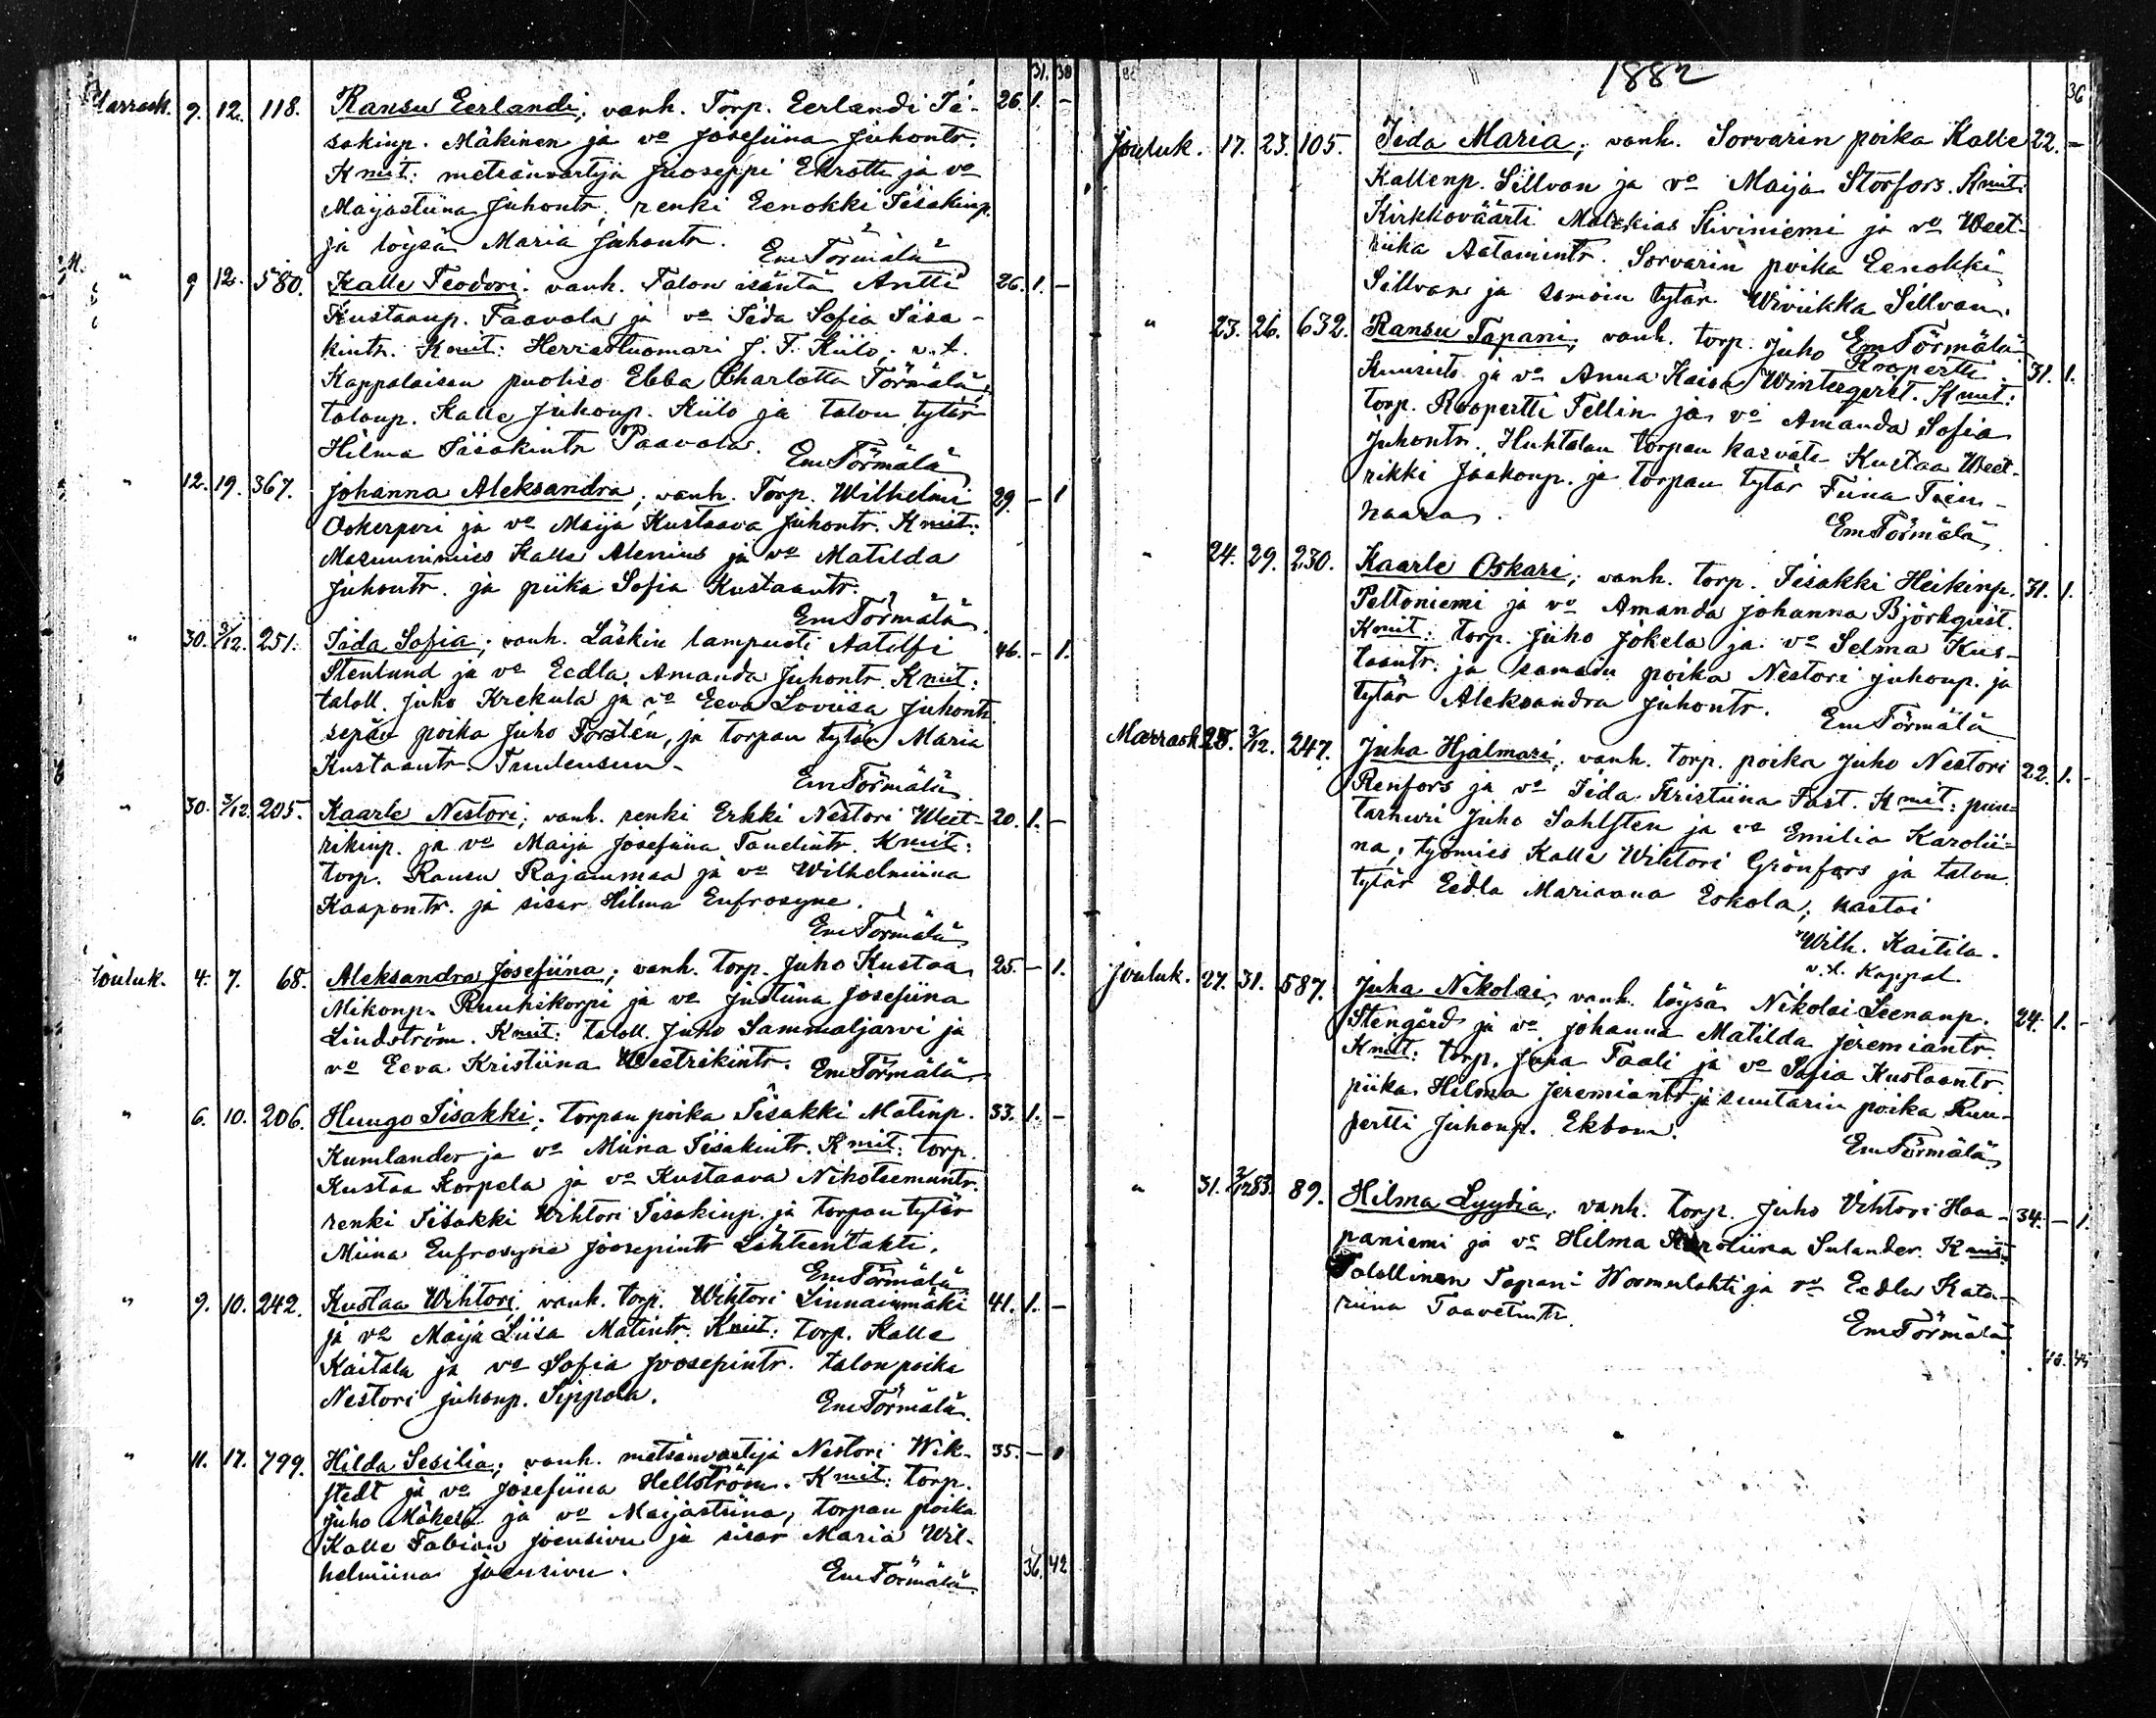 31. 38
Marrask. 9. 12. 118. Ransu Eerlandi; vanh. Torp. Eerlandi Ii- 26. 1. -
sakinp. Mäkinen ja vo Josefiina Juhontr.
Kmit: metsänvartija Juoseppi Ekrotti ja vo
Maijastiina Juhontr, renki Eenokki Iisakinp.
ja löysä Maria Juhontr.
Em Törmälä
" 9 12. 580. Kalle Teodori; vanh. Talon isäntä Antti 26. 1. -
Kustaanp. Taavola ja vo Iida Sofia Iisa-
kintr. Kmit: Herrastuomari J. F. Kiilo; v.t.
Kappalaisen puoliso Ebba Charlotta Törmälä;
taloup. Kalle Juhonp. Kiilo ja talon tytär
Hilma Iisakintr Paavola.
Em Törmälä
" 12. 19. 367. Johanna Aleksandra; vanh. Torp. Wilhelmi 29. - 1
Ookerperi ja vo Maija Kustaava Juhontr. Kmit:
Masuunimies Kalle Alenius ja vo Matilda
Juhontr. ja piika Sofia Kustaantr.
Em Törmälä.
" 30. 3/12. 251. Iida Sofia; vanh. Läskin lampuoti Aatolfi 46. - 1.
Stenlund ja vo Eedla Amanda Juhontr. Kmit:
taloll. Juho Krekula ja vo Eeva Loviisa Juhontr.
sepän poika Juho Forstén, ja torpan tytär Maria
Kustaantr. Tuulensuu.
Em Törmälä.
" 30. 3/12. 205. Kaarle Nestori; vanh. renki Erkki Nestori Weet- 20. 1. -
rikinp. ja vo Maija Josefiina Tanelintr. Kmit:
torp. Ransu Rajanmaa ja vo Wilhelmiina
Kaapontr. ja sisar Hilma Eufrosyne.
Em Törmälä
Jouluk. 4. 7. 68. Aleksandra Josefiina; vanh. Torp. Juho Kustaa 25. - 1.
Mikonp. Ruuhikorpi ja vo Justiina Josefiina
Lindström. Kmit: taloll. Juho Sammaljärvi ja
vo Eeva Kristiina Weetrikintr.
Em Törmälä
" 6. 10. 206. Huugo Iisakki; torpan poika Iisakki Matinp. 33. 1. -
Kumlander ja vo Miina Iisakintr. Kmit: torp.
Kustaa Korpela ja vo Kustaava Nikoteemuntr.
renki Iisakki Wihtori Iisakinp. ja torpan tytär
Miina Eufrosyne Joosepintr Lähteentakti.
Em Törmälä
" 9. 10. 242. Kustaa Wihtori; vanh. torp. Wihtori Linnainmäki 41. 1. -
ja vo Maija Liisa Matintr. Kmit: torp. Kalle
Kaitala ja vo Sofia Joosepintr. talon poika
Nestori Juhonp. Sippola.
Em Törmälä.
" 11. 17. 799. Hilda Sesilia; vanh. metsänvartija Nestori Wik- 35. - 1
stedt ja vo Josefiina Hellström. Kmit: torp.
Juho Mäkelä ja vo Maijastiina, torpan poika
Kalle Fabian Joensivu ja sisar Maria Wil-
helmiina Joensivu.
Em Törmälä.
36. 42
1882
36
Jouluk. 17. 23. 105. Iida Maria; vanh. Sorvarin poika Kalle 22. -
Kallenp. Sillvan ja vo Maija Storfors. Kmit:
Kirkkoväärti Malakias Kiviniemi ja vo Weet-
riika Aatamintr. Sorvarin poika Eenokki
Sillvan ja samoin tytär Wiviikka Sillvan.
Em Törmälä
" 23. 26. 632. Ransu Tapani; vanh. torp. Juho Ruopertti 31. 1.
Kuuristo ja vo Anna Kaisa Wintergvist. Kmit:
torp. Roopertti Fellin ja vo Amanda Sofia
Juhontr., Huhtalan torpan kasvate Kustaa Weet-
rikki Jaakonp. ja torpan tytär Fiina Tien-
haara.
Em Törmälä
" 24. 29. 230. Kaarle Oskari; vanh. torp. Iisakki Heikinp. 31. 1.
Peltoniemi ja vo Amanda Johanna Björkqvist.
Kmit: torp. Juho Jokela ja vo Selma Kus-
taantr. ja samoin poika Nestori Juhonp. ja
tytär Aleksandra Juhontr.
Em Törmälä
Marrask. 28. 3/12. 247. Juha Hjalmari; vanh. torp. poika Juho Nestori 22. 1. -
Renfors ja vo Iida Kristiina Fast. Kmit: puu-
tarhuri Juho Sahlsten ja vo Emilia Karolii-
na; työmies Kalle Wihtori Grönfors ja talon
tytär Eedla Mariaana Eskola; kastoi
Wilh. Kaitila.
v.t. Kappal.
Jouluk. 27. 31. 587. Juha Nikolai; vanh. löysä Nikolai Leenanp. 24. 1. -
Stengård ja vo Johanna Matilda Jeremiantr.
Kmit: torp. Juha Taali ja vo Sofia Kustaantr.
piika Hilma Jeremiantr. ja suutarin poika Ruu-
pertti Juhonp. Ekbom.
Em Törmälä
" 31. 2/1 83. 89. Hilma Lyydia; vanh. torp. Juho Vihtori Haa- 34. - 1.
paniemi ja vo Hilma Karoliina Sulander. Kmit:
Talollinen Tapani Wormulahti ja vo Eedla Kata-
riina Taavetintr.
Em Törmälä